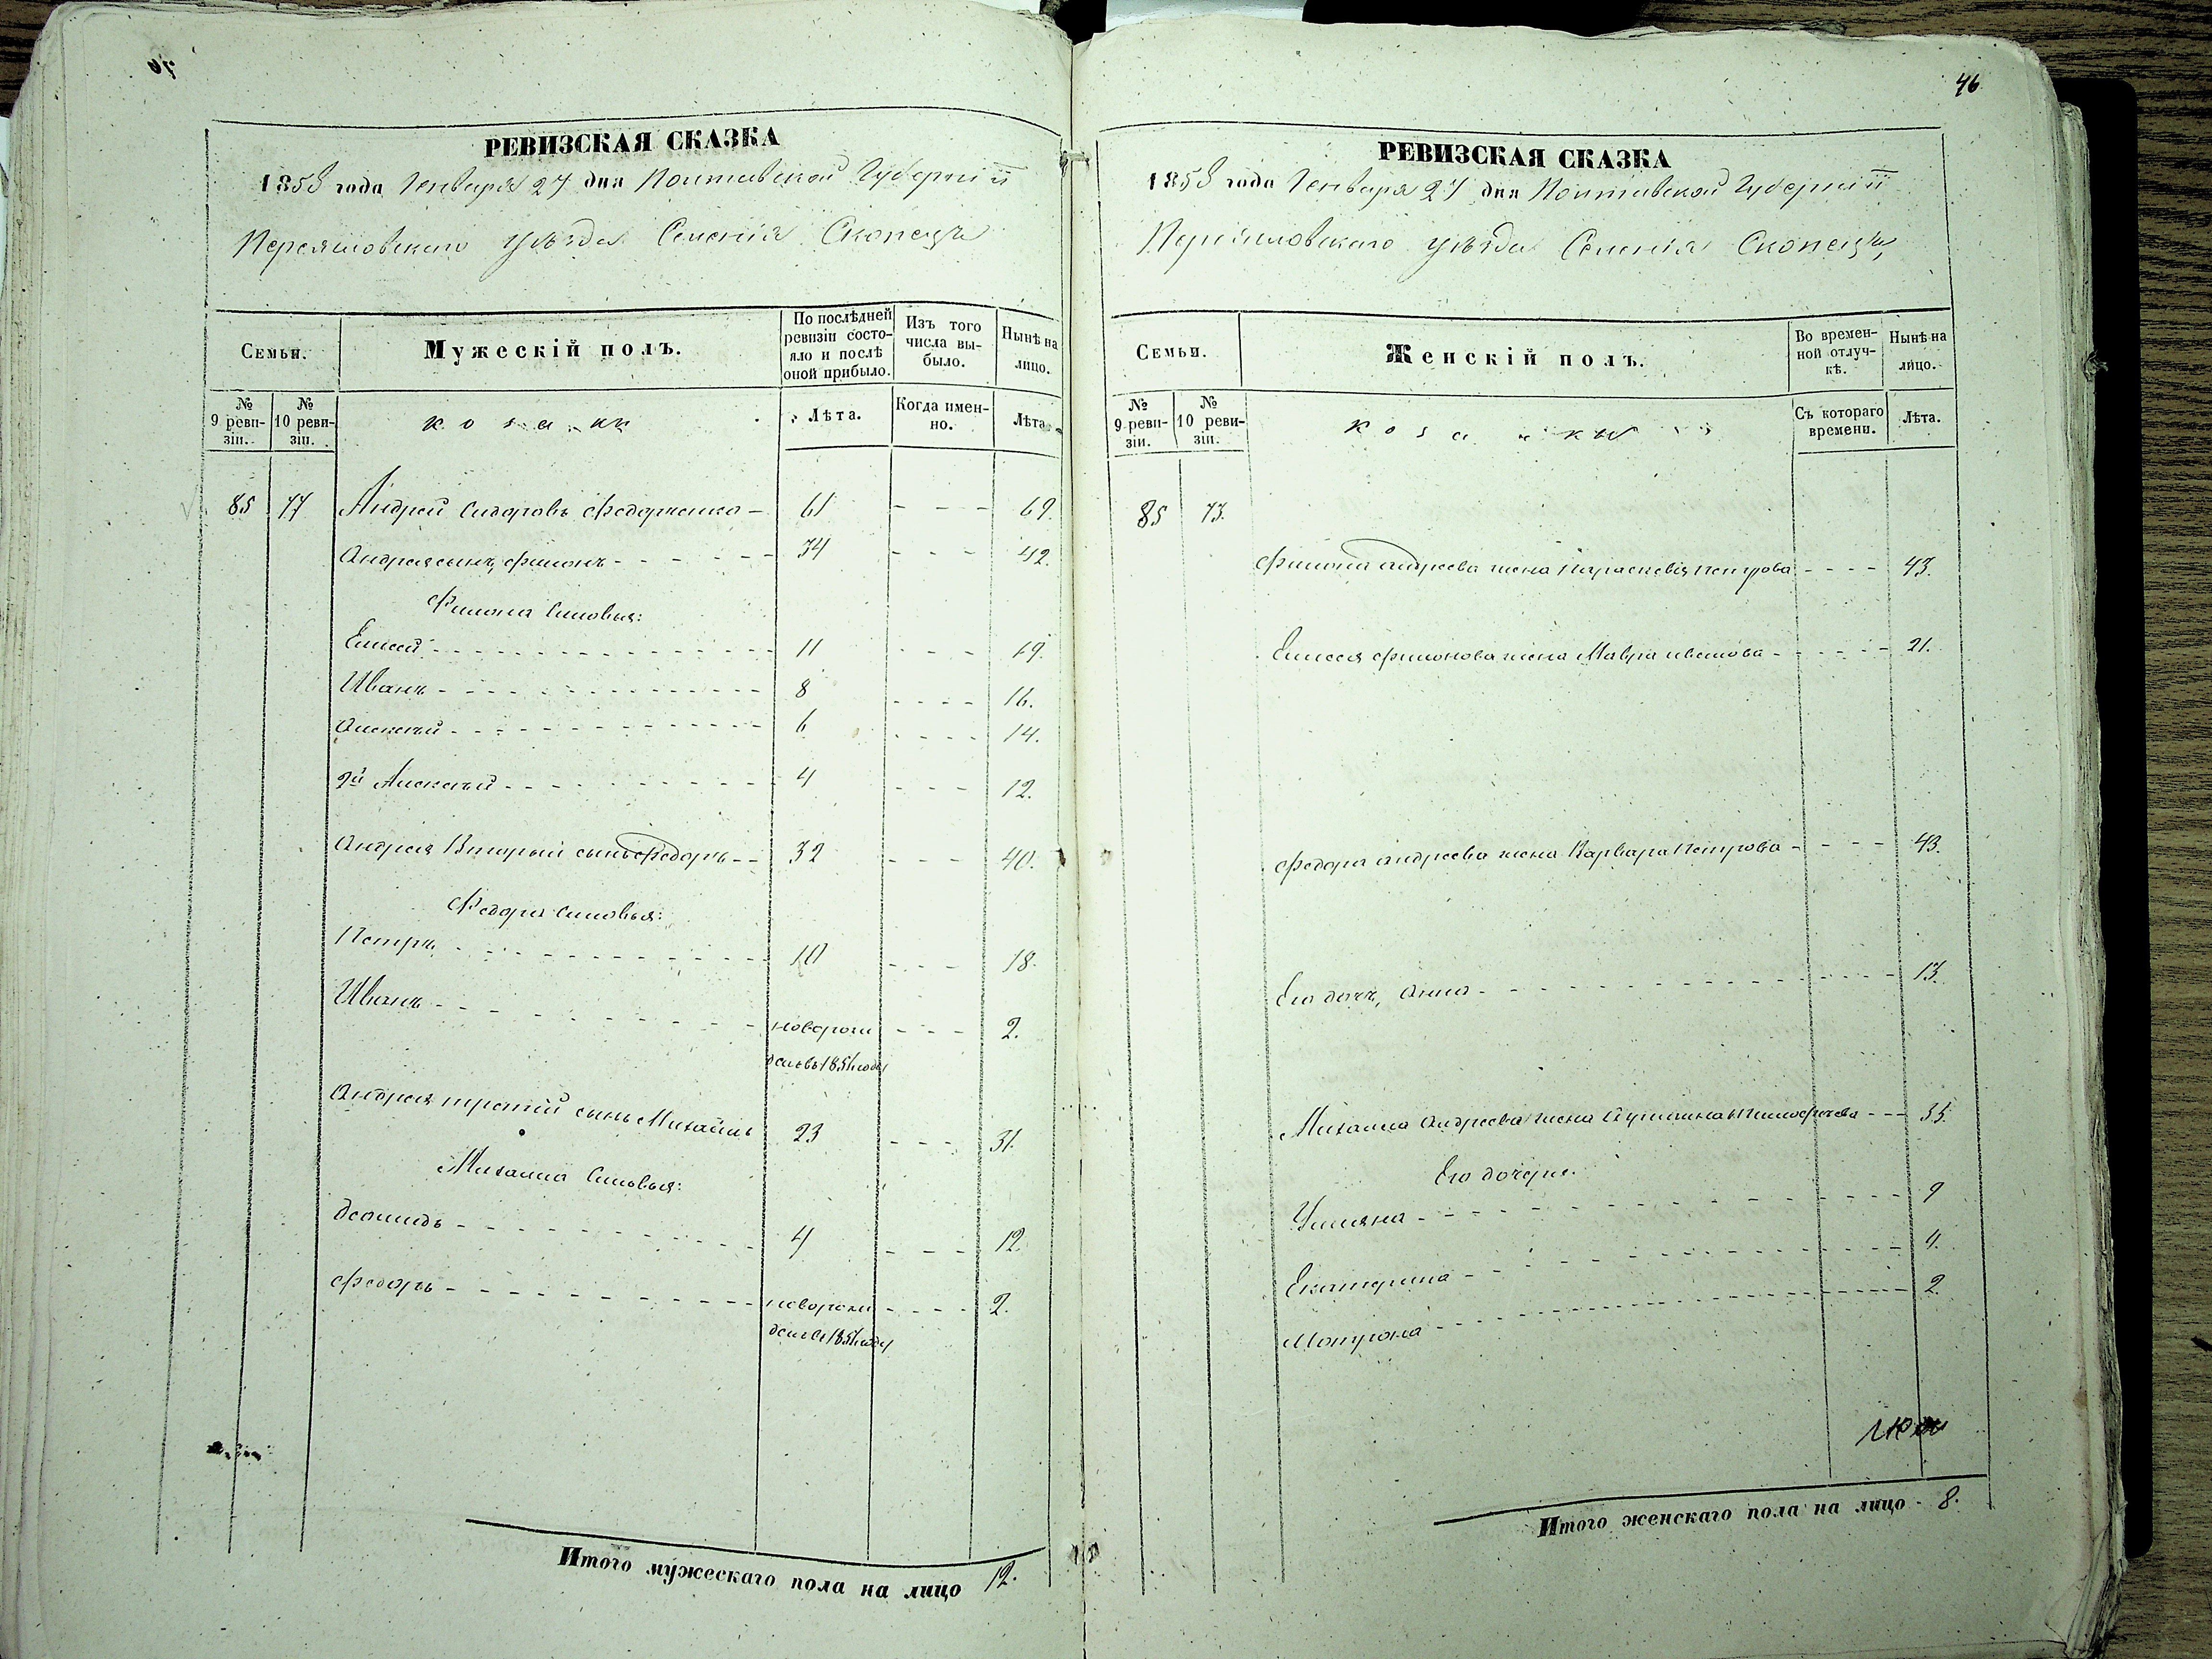 РЕВИЗСКАЯ СКАЗКА
1858 года Генваря 27 дня Полтавской Губерніи
Переяславского уѣзда Селенія Скопецъ
Семьи.
Мужескій полъ.
По послѣдней ревизіи состояло и послѣ оной прибыло.
Изъ того числа выбыло.
Нынѣ на лицо.
№ 9 ревизіи.
№ 10 ревизіи.
козаки
Лѣта.
Когда именно.
Лѣта
85 77 Андрей Сидоровъ Федорченко - 61 - - - 69.
Андрея сынъ, Филонъ - - - - - 34 - - - 42.
Филона Сыновья:
Елисей - - - - - 11 - - - 19.
Иванъ - - - - - 8 - - - - 16.
Алексѣй - - - - - 6 - - - - 14.
2й Алексѣй - - - - - 4 - - - 12.
Андрея Вторый сынъ Федоръ - - 32 - - - 40.
Федора сыновья:
Петръ - - - - - 10 - - - 18.
Иванъ - - - - - новорож - - - 2.
денъ въ 185 года
Андрея третій сынъ Михайло 23 - - - 31.
Михаила Сыновья:
Демидъ - - - - - 4 - - - 12.
Федоръ - - - - - новорож - - - - 2.
денъ въ 185 года
Итого мужескаго пола на лицо 12.
46
РЕВИЗСКАЯ СКАЗКА
1858 года Генваря 27 дня Полтавской Губерніи
Переяславского уѣзда Селенія Скопецъ
Семьи.
Женскій полъ.
Во временной отлучкѣ.
Нынѣ на лицо.
№ 9 ревизіи.
№ 10 ревизіи.
козачки
Съ котораго времени.
Лѣта.
85 77.
Филона Андреева жена Параскевія Петрова - - - - 43.
Елисея Филонова жена Мавра Иванова - - - - - 21.
Федора Андреева жена Варвара Петрова - - - - 43.
Его дочь, Анна - - - - - 13.
Михаила Андреева жена Тимофеева - - - 35.
Его дочери:
Ульяна - - - - - 9
Екатерина - - - - - 4.
Матрона - - - - - 2.
Итого женскаго пола на лицо - 8.